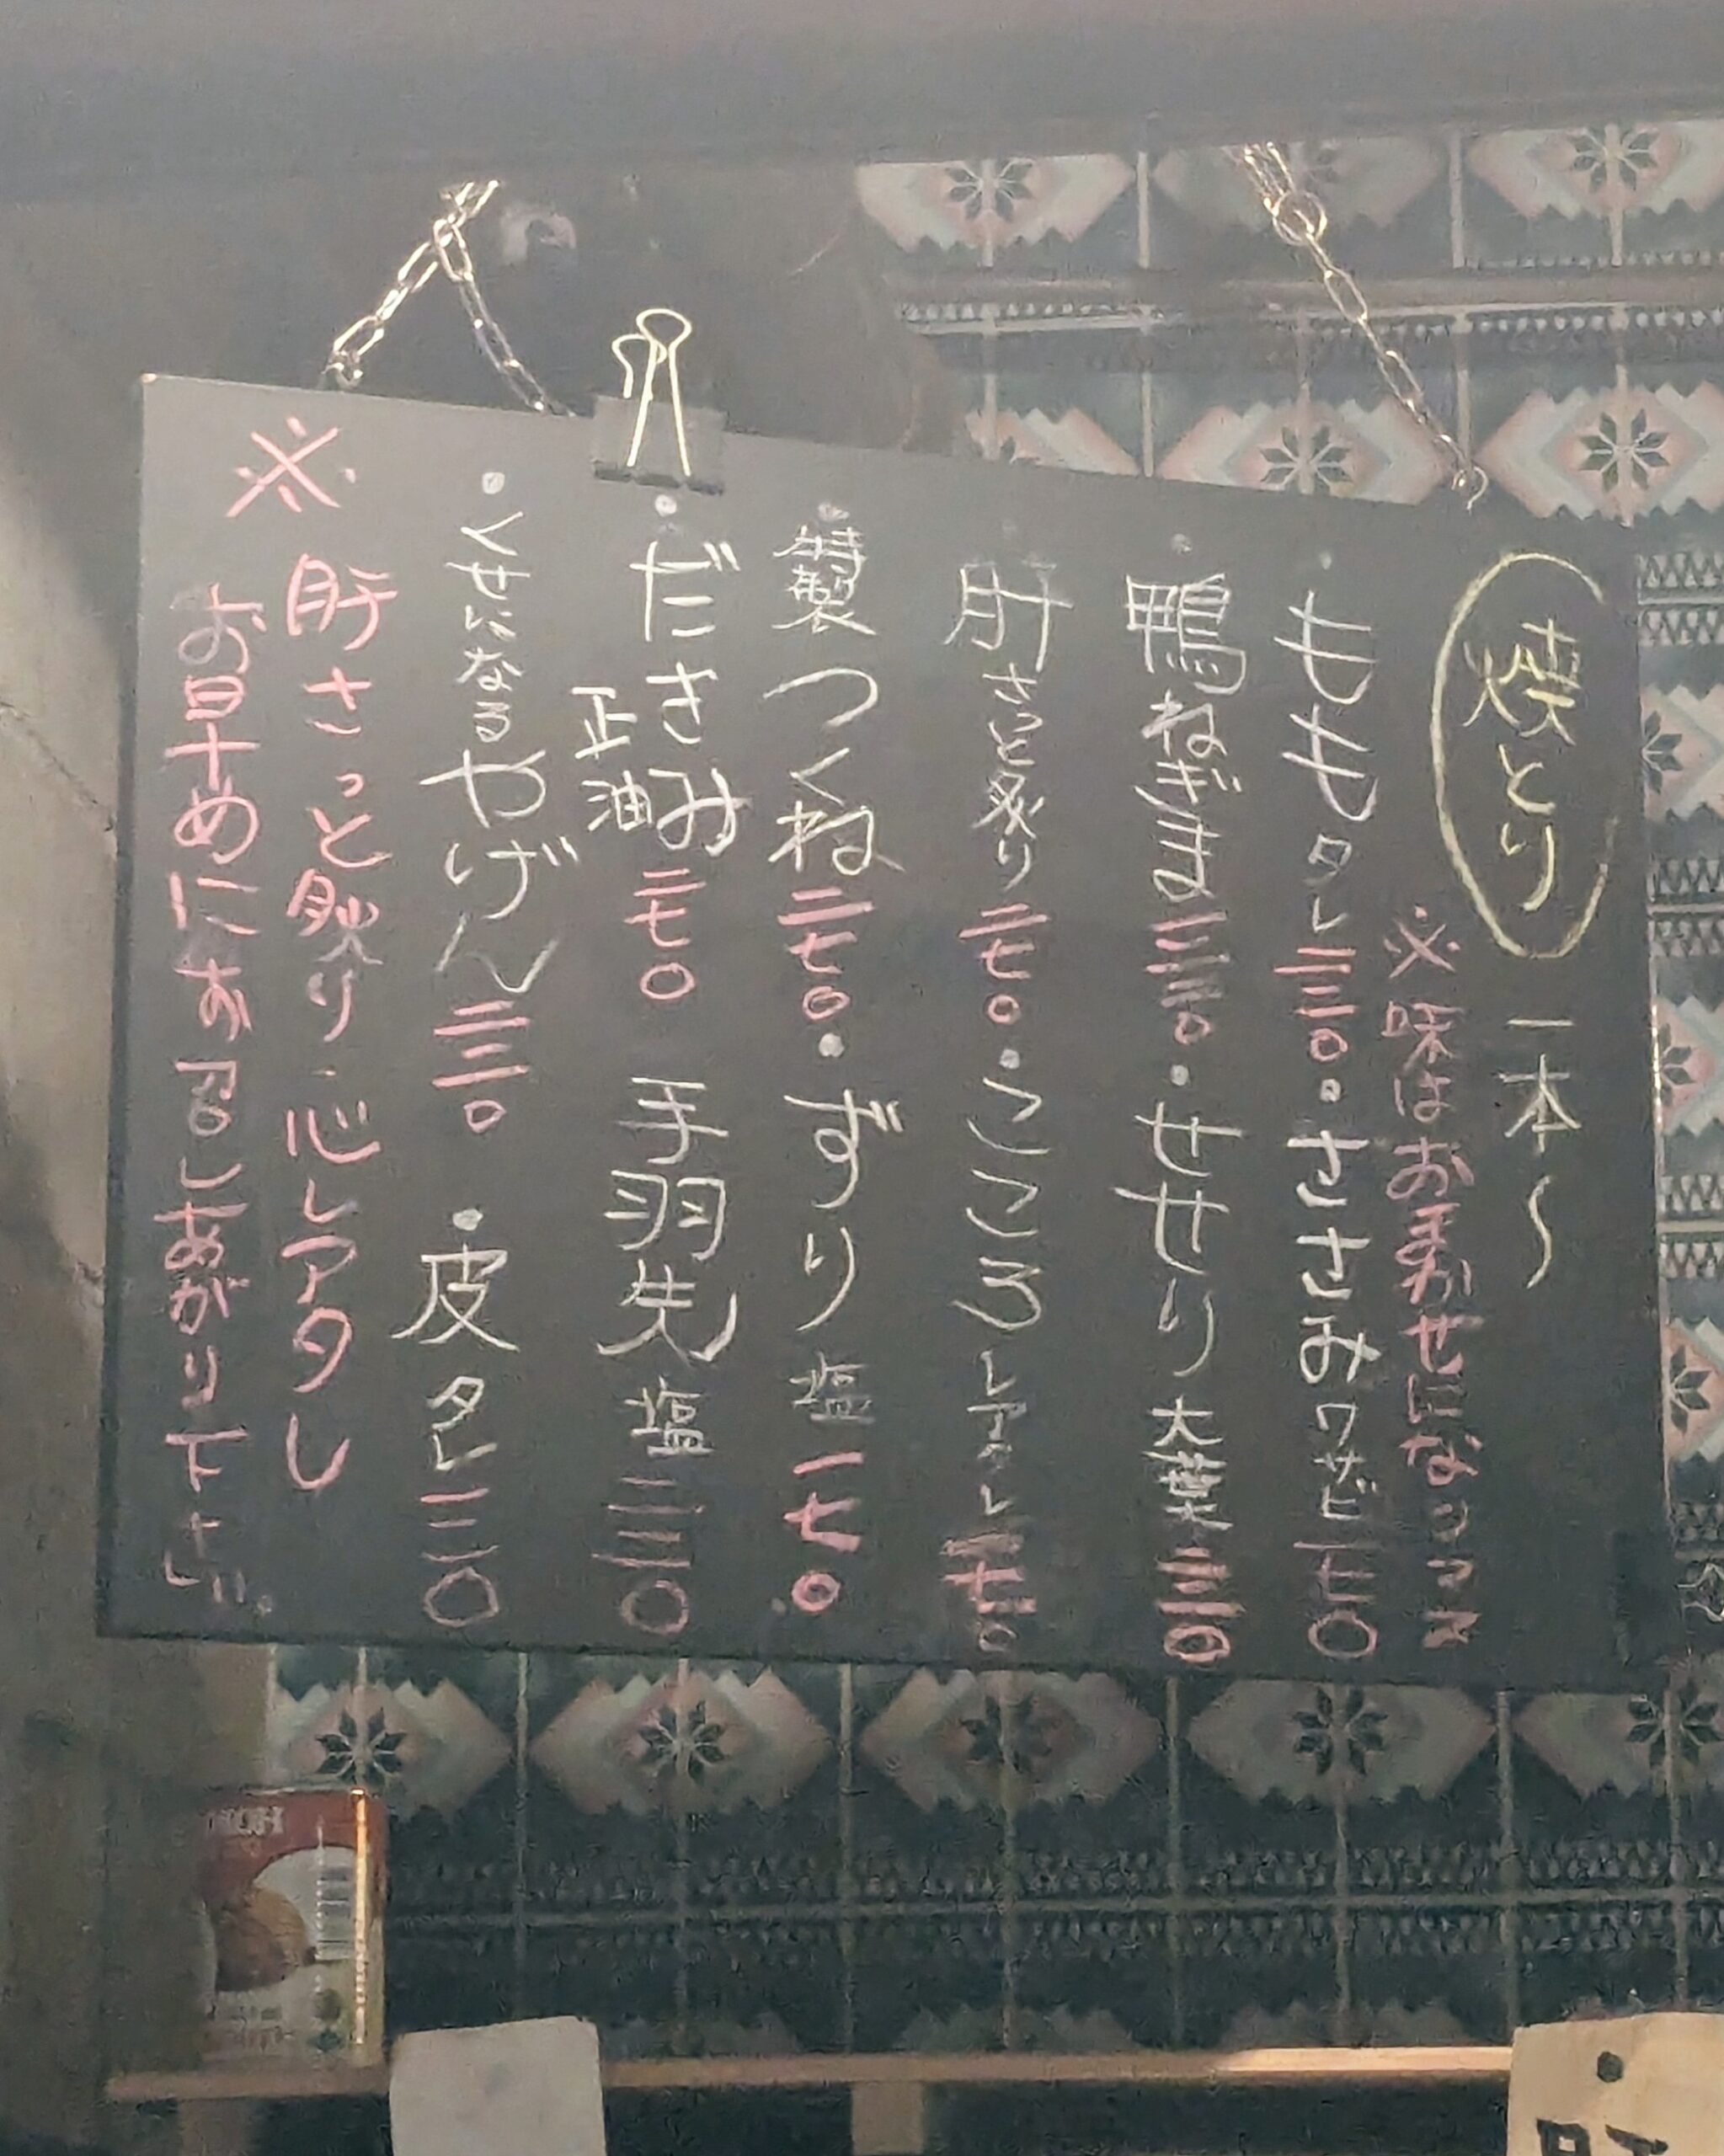 焼とり 一本〜
※味はおまかせになります
・ももタレ 二三〇
・ささみワサビ 一七〇
・鴨ねぎま 三三〇
・せせり大葉 二三〇
・肝さっと炙り 二七〇
・こころレアタレ 一七〇
・特製つくね 二七〇
・ずり塩 一七〇
・だきみ正油 二七〇
手羽先塩 二三〇
・くせになるやげん 二三〇
・皮タレ 一三〇
※肝さっと炙り・心レアタレ
お早めにお召しあがり下さい。